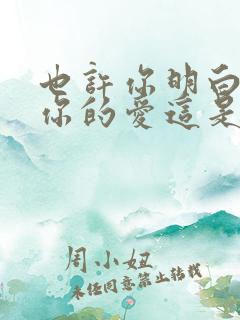 也許你明白
你的愛這是
周小妞
未任同意禁止转载